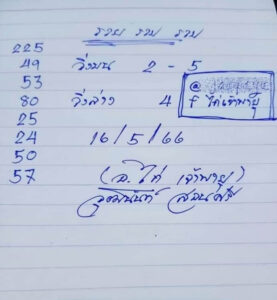 รวย รวย รวย
225
49 วิ่งบน 2 - 5
53
80 วิ่งล่าง 4
f ไก่เจ้าพายุ
25
24 16/5/66
50
57 (อ. ไก่ เจ้าพายุ)